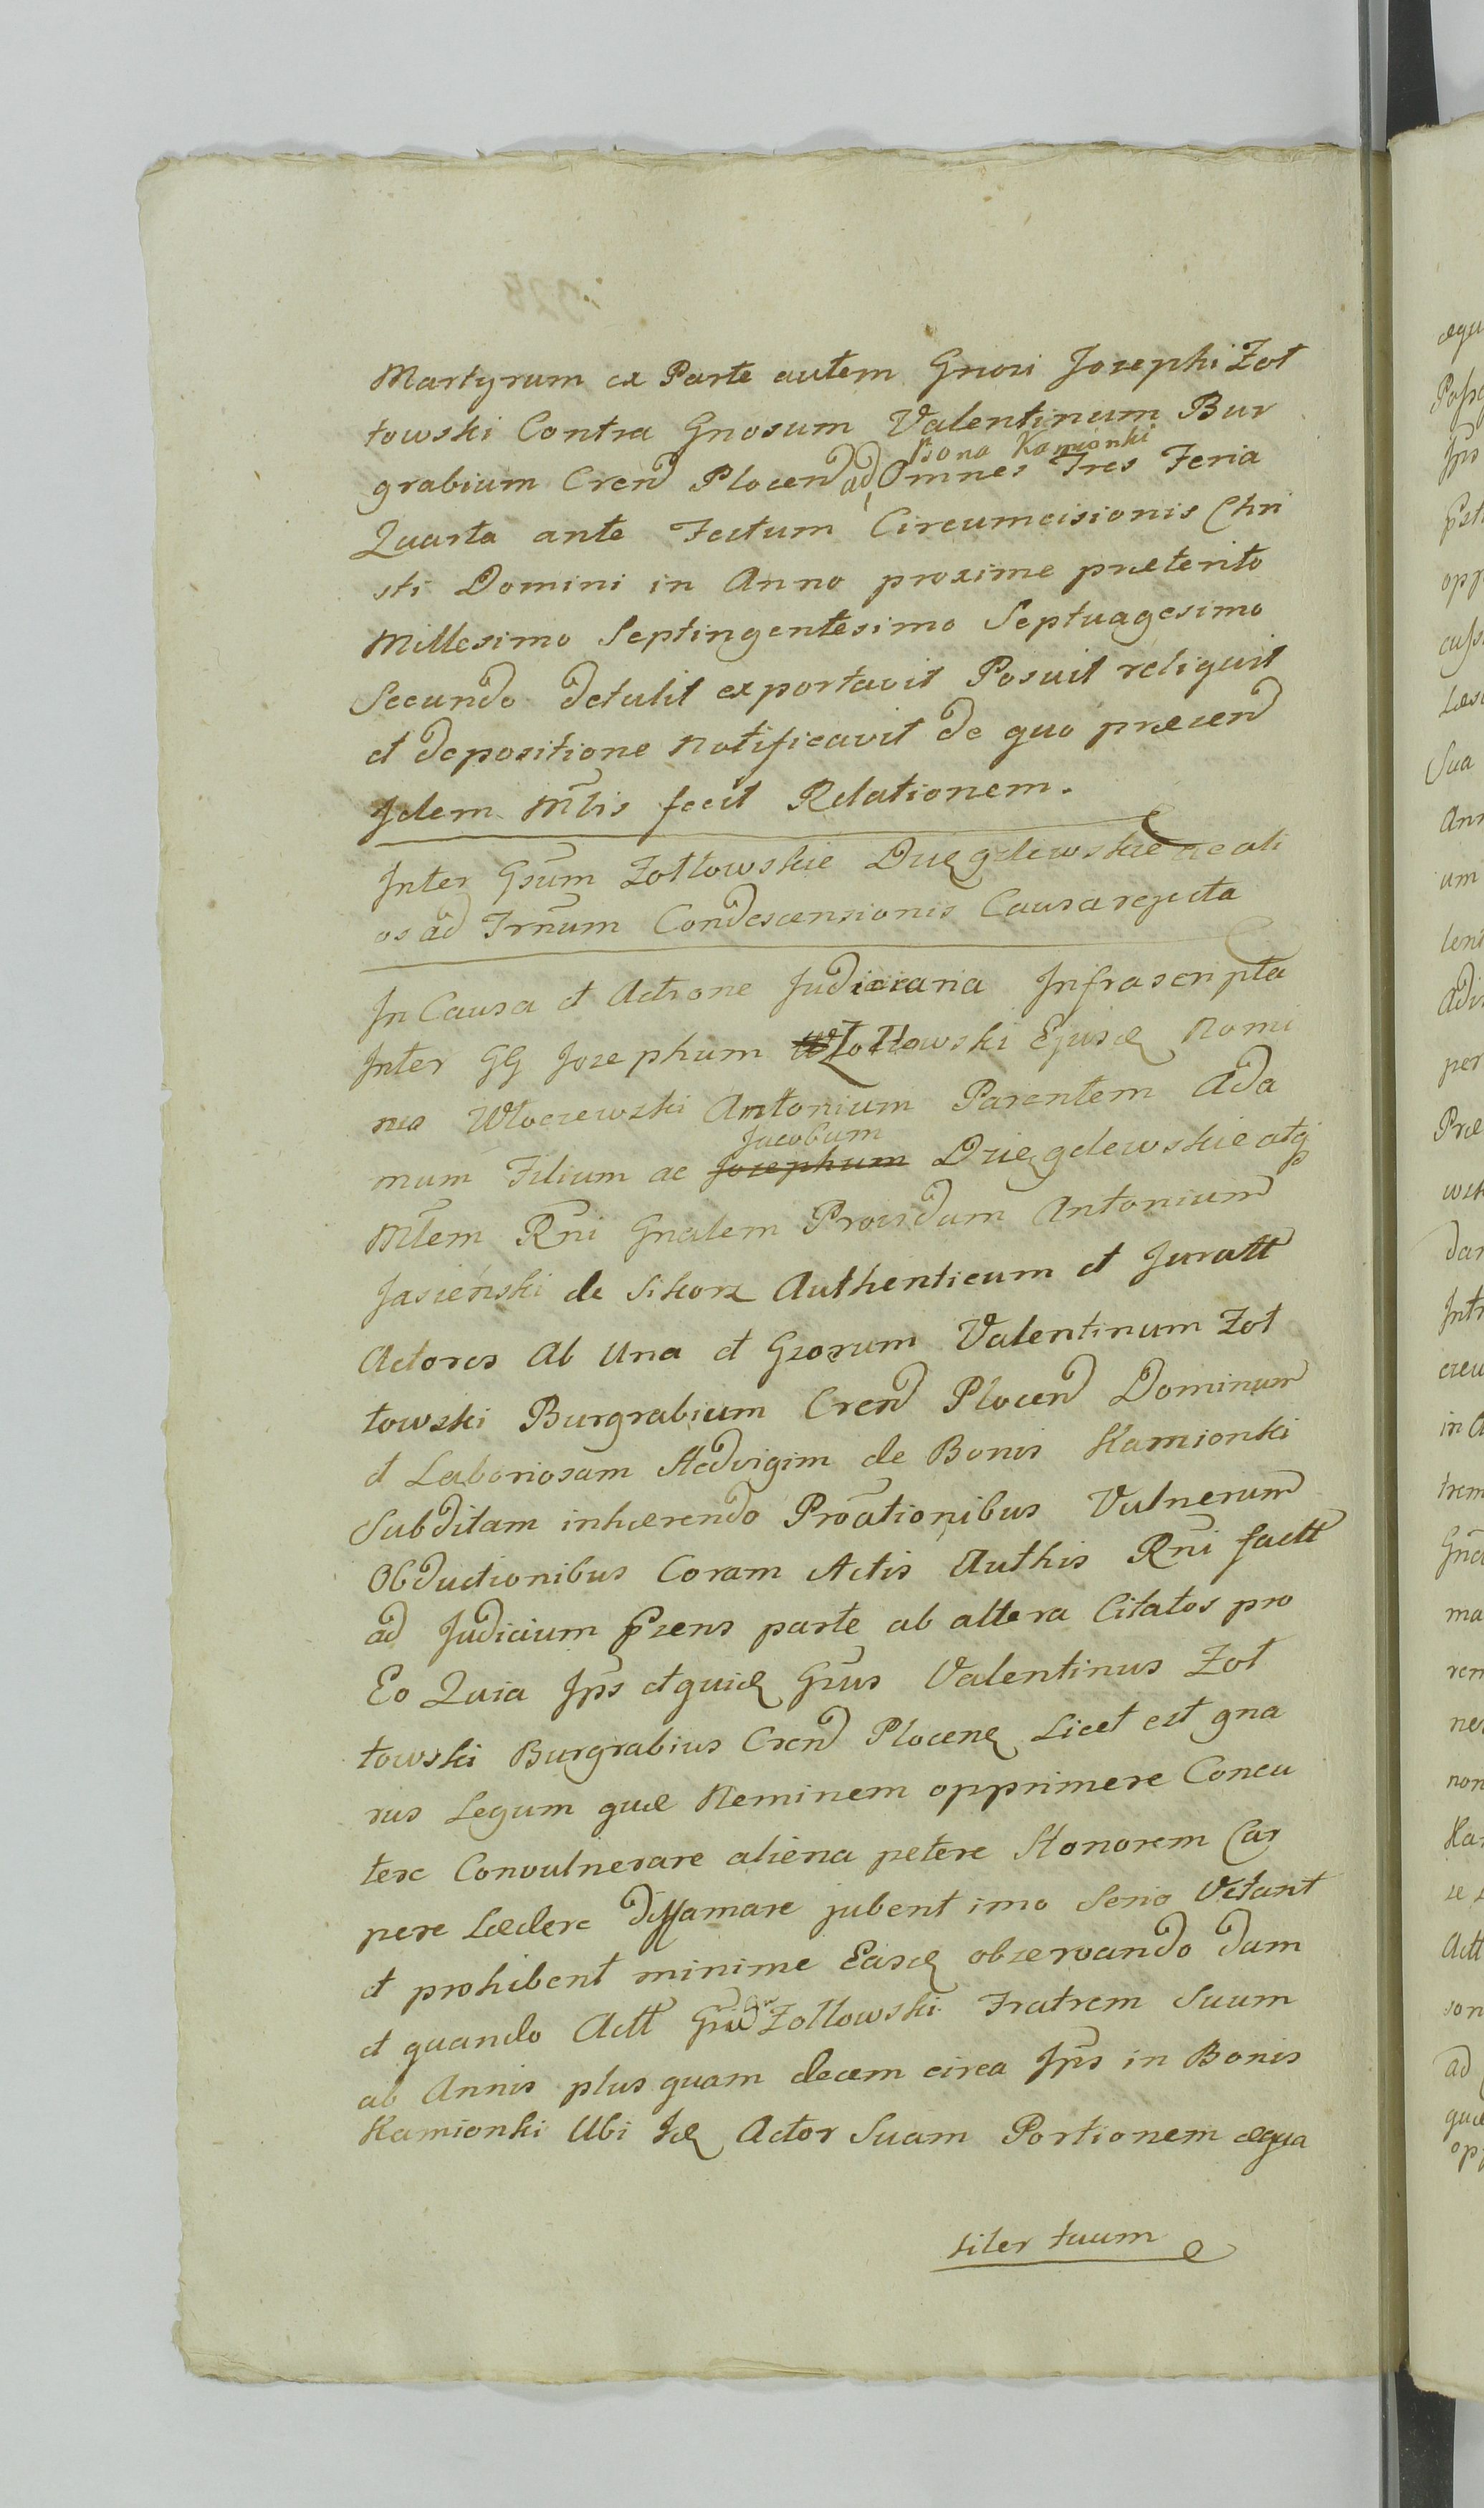 Martyrum ex Parte autem Gnosi Josephi Żoł
towski Contra Gnosum Valentinum Bur
grabium Cren Plocen ad Bona Kamionki Omnes Tres Feria
Quarta ante Festum Circumcisionis Chri
sti Domini in Anno proxime præterito
Millesimo Septingentesimo Septuagesimo
Secundo detulit exportavit Posuit reliquit
et depositione notificavit de quo præcen
Idem Mlis fecit Relationem.
Inter Gsum Żołtowskie Dzięgelewskie ac ali
os ad Trnum Condescensionis Causa rejecta
In Causa et Actione Judiciaria Infrascripta
Inter GG Josephum Żołtowski Ejusq Nomi
nis Włoczewski Antonium Parentem Ada
mum Filium ac Josephum Jacobum Dzięgelewskie atq
Mlem Rni Gnalem Providum Antonium
Jasieński de Sikorz Authenticum et Juratt
Actores ab Una et Gzosum Valentinum Żoł
towski Burgrabium Cren Plocen Dominum
et Laboriosam Hedvigim de Bonis Kamionki
Subditam inhærendo Proationibus Vulnerum
Obductionibus Coram Actis Authis Rni factt
ad Judicium Pzens parte ab altera Citatos pro
Eo Quia Ips etquid Gzus Valentinus Żoł
towski Burgrabius Cren Plocen Licet est gna
rus Legum quæ Neminem opprimere Concu
tere Convulnerare aliena petere Honorem Car
pere Lædere diffamare jubent imo Serio Vetant
et prohibent minime Easd observando dum
et quando Actt Żołtowski Fratrem Suum
ab Annis plus quam decem circa Ips in Bonis
Kamionki Ubi Id Actor Suam Portionem æqua
liter tuum